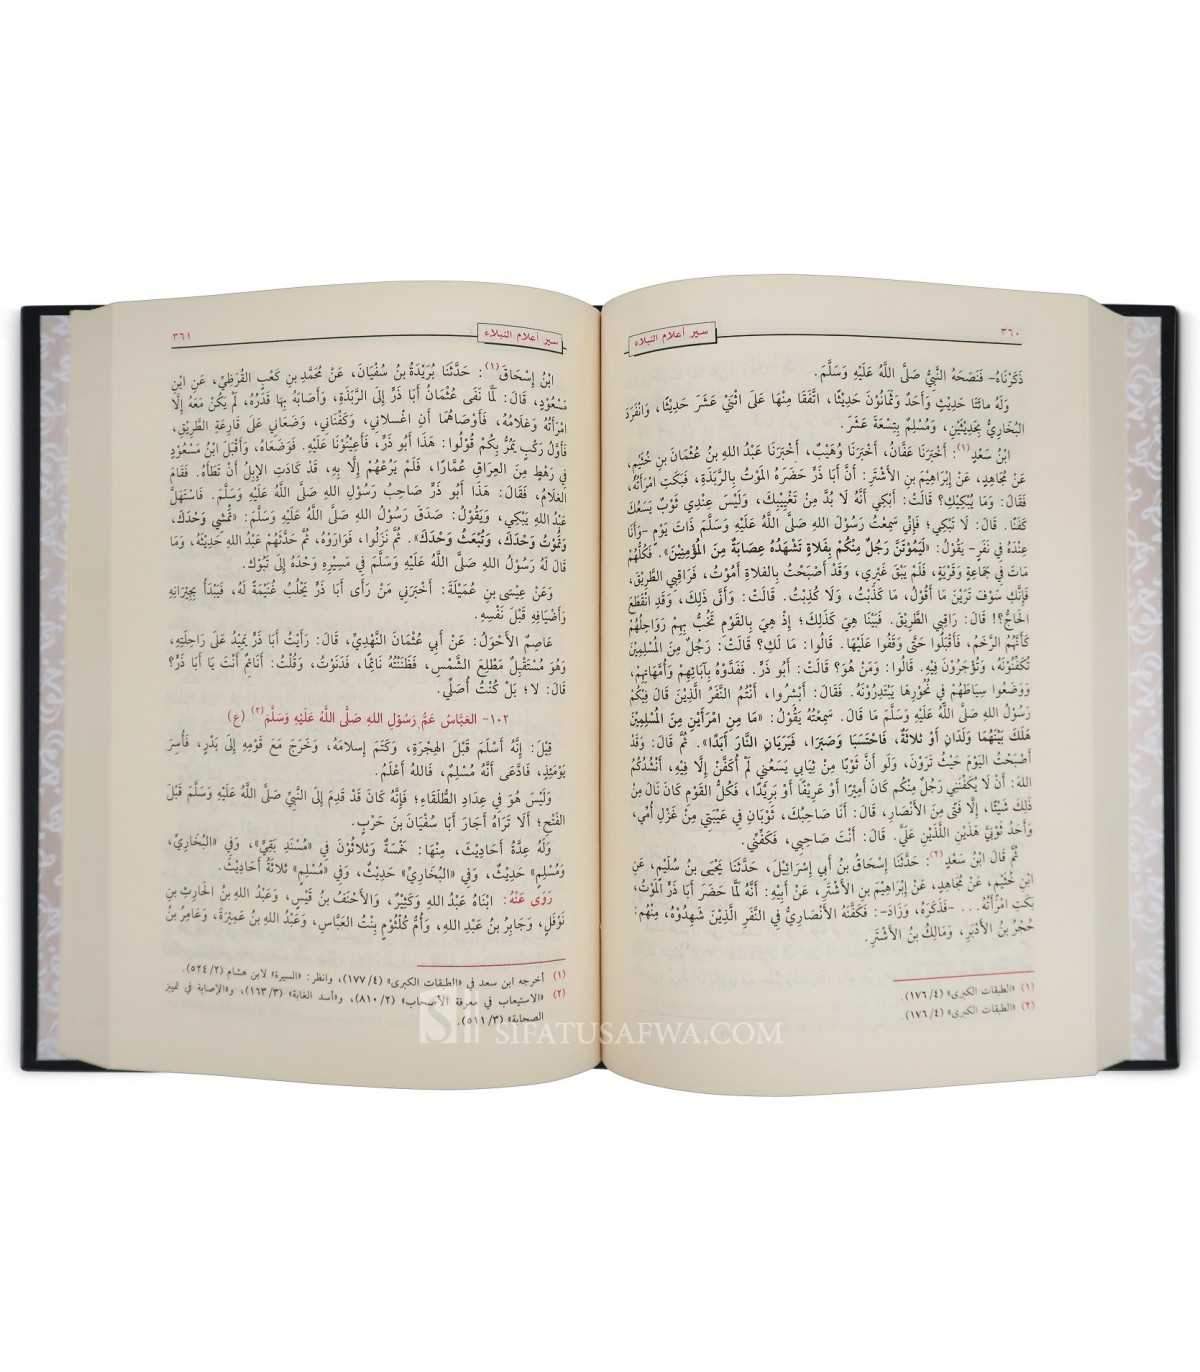 ٣٦٠
سير أعلام النبلاء
ذَكَرْنَاهُ- فَنَصَحَهُ النَّبِيُّ صَلَّى اللَّهُ عَلَيْهِ وَسَلَّمَ.
وَلَهُ مائتَا حَدِيْثٍ وَأَحَدٌ وَثَمَانُوْنَ حَدِيْثًا، اتَّفَقَا مِنْهَا عَلَى اثْنَيْ عَشَرَ حَدِيْثًا، وَانْفَرَدَ
البُخَارِيُّ بِحَدِيْثَيْنِ، وَمُسْلِمٌ بِتِسْعَةَ عَشَرَ.
ابْنُ سَعْدٍ(١): أَخْبَرَنَا عَفَّانُ، أَخْبَرَنَا وُهَيْبٌ، أَخْبَرَنَا عَبْدُ اللهِ بنُ عُثْمَانَ بنِ خُثَيْمٍ،
عَنْ مُجَاهِدٍ، عَنْ إِبْرَاهِيْمَ بنِ الأَشْتَرِ: أَنَّ أَبَا ذَرٍّ حَضَرَهُ المَوْتُ بِالرَّبَذَةِ، فَبَكَتِ امْرَأَتُهُ،
فَقَالَ: وَمَا يُبْكِيْكِ؟ قَالَتْ: أَبْكِي أَنَّهُ لَا بُدَّ مِنْ تَغْيِيْبِكَ، وَلَيْسَ عِنْدِي ثَوْبٌ يَسَعُكَ
كَفَنًا. قَالَ: لَا تَبْكِي؛ فَإِنِّي سَمِعْتُ رَسُوْلَ اللهِ صَلَّى اللَّهُ عَلَيْهِ وَسَلَّمَ ذَاتَ يَوْمٍ -وَأَنَا
عِنْدَهُ فِي نَفَرٍ- يَقُوْلُ: «لَيَمُوْتَنَّ رَجُلٌ مِنْكُمْ بِفَلاةٍ تَشْهَدُهُ عِصَابَةٌ مِنَ المُؤْمِنِيْنَ». فَكُلُّهُمْ
مَاتَ فِي جَمَاعَةٍ وَقَرْيَةٍ، فَلَمْ يَبْقَ غَيْرِي، وَقَدْ أَصْبَحْتُ بِالفَلاةِ أَمُوْتُ، فَرَاقِبِي الطَّرِيْقَ،
فَإِنَّكِ سَوْفَ تَرَيْنَ مَا أَقُوْلُ، مَا كَذَبْتُ، وَلَا كُذِبْتُ. قَالَتْ: وَأَنَّى ذَلِكَ، وَقَدِ انْقَطَعَ
الحَاجُّ؟! قَالَ: رَاقِبِي الطَّرِيْقَ. فَبَيْنَا هِيَ كَذَلِكَ؛ إِذْ هِيَ بِالقَوْمِ تَخُبُّ بِهِمْ رَوَاحِلُهُمْ
كَأَنَّهُمُ الرَّخَمُ، فَأَقْبَلُوا حَتَّى وَقَفُوا عَلَيْهَا. قَالُوا: مَا لَكِ؟ قَالَتْ: رَجُلٌ مِنَ المُسْلِمِيْنَ
تُكَفِّنُوْنَهُ، وَتُؤْجَرُوْنَ فِيْهِ. قَالُوا: وَمَنْ هُوَ؟ قَالَتْ: أَبُو ذَرٍّ. فَفَدَّوْهُ بِآبَائِهِمْ وَأُمَّهَاتِهِمْ،
وَوَضَعُوا سِيَاطَهُمْ فِي نُحُوْرِهَا يَبْتَدِرُوْنَهُ. فَقَالَ: أَبْشِرُوا، أَنْتُمُ النَّفَرُ الَّذِيْنَ قَالَ فِيْكُمْ
رَسُوْلُ اللهِ صَلَّى اللَّهُ عَلَيْهِ وَسَلَّمَ مَا قَالَ. سَمِعْتُهُ يَقُوْلُ: «مَا مِنِ امْرَأَيْنِ مِنَ المُسْلِمِيْنَ
هَلَكَ بَيْنَهُمَا وَلَدَانِ أَوْ ثلاثَةٌ، فَاحْتَسَبَا وَصَبَرَا، فَيَرَيَانِ النَّارَ أَبَدًا». ثُمَّ قَالَ: وَقَدْ
أَصْبَحْتُ اليَوْمَ حَيْثُ تَرَوْنَ، وَلَو أَنَّ ثَوْبًا مِنْ ثِيَابِي يَسَعُنِي لَمْ أُكَفَّنْ إِلَّا فِيْهِ، أَنْشُدُكُمُ
اللهَ: أَنْ لَا يُكَفِّنَنِي رَجُلٌ مِنْكُم كَانَ أَمِيْرًا أَوْ عَرِيْفًا أَوْ بَرِيْدًا، فَكُلُّ القَوْمِ كَانَ نَالَ مِنْ
ذَلِكَ شَيْئًا، إِلَّا فَتًى مِنَ الأَنْصَارِ، قَالَ: أَنَا صَاحِبُكَ، ثَوْبَانِ فِي عَيْبَتِي مِنْ غَزْلِ أُمِّي،
وَأَحَدُ ثَوْبَيَّ هَذَيْنِ اللَّذَيْنِ عَلَيَّ. قَالَ: أَنْتَ صَاحِبِي، فَكَفِّنِّي.
ثُمَّ قَالَ ابْنُ سَعْدٍ(٢): حَدَّثَنَا إِسْحَاقُ بنُ أَبِي إِسْرَائِيْلَ، حَدَّثَنَا يَحْيَى بنُ سُلَيْمٍ، عَنِ
ابْنِ خُثَيْمٍ، عَنْ مُجَاهِدٍ، عَنْ إِبْرَاهِيْمَ بنِ الأَشْتَرِ، عَنْ أَبِيْهِ: أَنَّهُ لَمَّا حَضَرَ أَبَا ذَرٍّ المَوْتُ،
بَكَتِ امْرَأَتُهُ... -فَذَكَرَهُ، وَزَادَ-: فَكَفَّنَهُ الأَنْصَارِيُّ فِي النَّفَرِ الَّذِيْنَ شَهِدُوْهُ، مِنْهُم:
حُجْرُ بنُ الأَدْبَرِ، وَمَالِكُ بنُ الأَشْتَرِ.
(١) «الطبقات الكبرى» (١٧٦/٤).
(٢) «الطبقات الكبرى» (١٧٦/٤).
سير أعلام النبلاء
٣٦١
ابْنُ إِسْحَاقَ(١): حَدَّثَنَا بُرَيْدَةُ بنُ سُفْيَانَ، عَنْ مُحَمَّدِ بنِ كَعْبٍ القُرَظِيِّ، عَنِ ابْنِ
مَسْعُوْدٍ، قَالَ: لَمَّا نَفَى عُثْمَانُ أَبَا ذَرٍّ إِلَى الرَّبَذَةِ، وَأَصَابَهُ بِهَا قَدَرُهُ، لَمْ يَكُنْ مَعَهُ إِلَّا
امْرَأَتُهُ وَغلَامُهُ، فَأَوْصَاهُمَا أَنِ اغْسلَانِي، وَكَفِّنَانِي، وَضَعَانِي عَلَى قَارِعَةِ الطَّرِيْقِ،
فَأَوَّلُ رَكْبٍ يَمُرُّ بِكُمْ قُوْلُوا: هَذَا أَبُو ذَرٍّ، فَأَعِيْنُوْنَا عَلَيْهِ. فَوَضَعَاهُ، وَأَقْبَلَ ابْنُ مَسْعُوْدٍ
فِي رَهْطٍ مِنَ العِرَاقِ عُمَّارًا، فَلَمْ يَرُعْهُمْ إِلَّا بِهِ، قَدْ كَادَتِ الإِبِلُ أَنْ تَطَأَهُ. فَقَامَ
الغلَامُ، فَقَالَ: هَذَا أَبُو ذَرٍّ صَاحِبُ رَسُوْلِ اللهِ صَلَّى اللَّهُ عَلَيْهِ وَسَلَّمَ. فَاسْتَهَلَّ
عَبْدُ اللهِ يَبْكِي، وَيَقُوْلُ: صَدَقَ رَسُوْلُ اللهِ صَلَّى اللَّهُ عَلَيْهِ وَسَلَّمَ: «تَمْشِي وَحْدَكَ،
وَتَمُوْتُ وَحْدَكَ، وَتُبْعَثُ وَحْدَكَ». ثُمَّ نَزَلُوا، فَوَارَوْهُ، ثُمَّ حَدَّثَهُمْ عَبْدُ اللهِ حَدِيْثَهُ، وَمَا
قَالَ لَهُ رَسُوْلُ اللهِ صَلَّى اللَّهُ عَلَيْهِ وَسَلَّمَ فِي مَسِيْرِهِ وَحْدَهُ إِلَى تَبُوْك.
وَعَنْ عِيْسَى بنِ عُمَيْلَةَ: أَخْبَرَنِي مَنْ رَأَى أَبَا ذَرٍّ يَحْلُبُ غُنَيْمَةً لَهُ، فَيَبْدَأُ بِجِيْرَانِهِ
وَأَضْيَافِهِ قَبْلَ نَفْسِهِ.
عَاصِمٌ الأَحْوَلُ: عَنْ أَبِي عُثْمَانَ النَّهْدِيِّ، قَالَ: رَأَيْتُ أَبَا ذَرٍّ يَمِيْدُ عَلَى رَاحِلَتِهِ،
وَهُوَ مُسْتَقْبِلٌ مَطْلِعَ الشَّمْسِ، فَظَنَنْتُهُ نَائِمًا، فَدَنَوْتُ، وَقُلْتُ: أَنَائِمٌ أَنْتَ يَا أَبَا ذَرٍّ؟
قَالَ: لَا؛ بَلْ كُنْتُ أُصَلِّي.
١٠٢- العَبَّاسُ عَمُّ رَسُوْلِ اللهِ صَلَّى اللَّهُ عَلَيْهِ وَسَلَّمَ(٢) (ع)
قِيْلَ: إِنَّهُ أَسْلَمَ قَبْلَ الهِجْرَةِ، وَكَتَمَ إِسلامَهُ، وَخَرَجَ مَعَ قَوْمِهِ إِلَى بَدْرٍ، فَأُسِرَ
يَوْمَئِذٍ، فَادَّعَى أَنَّهُ مُسْلِمٌ، فَاللهُ أَعْلَمُ.
وَلَيْسَ هُوَ فِي عِدَادِ الطُّلَقَاءِ؛ فَإِنَّهُ كَانَ قَدْ قَدِمَ إِلَى النَّبِيِّ صَلَّى اللَّهُ عَلَيْهِ وَسَلَّمَ قَبْلَ
الفَتْحِ؛ أَلَا تَرَاهُ أَجَارَ أَبَا سُفْيَانَ بنَ حَرْبٍ.
وَلَهُ عِدَّةُ أَحَادِيْثَ، مِنْهَا: خَمْسَةٌ وَثلاثُوْنَ فِي «مُسْنَدِ بَقِيٍّ»، وَفِي «البُخَارِيِّ،
وَمُسْلِمٍ» حَدِيْثٌ، وَفِي «البُخَارِيِّ» حَدِيْثٌ، وَفِي «مُسْلِمٍ» ثلاثَةُ أَحَادِيْثَ.
رَوَى عَنْهُ: ابْنَاهُ عَبْدُ اللهِ وَكَثِيْرٌ، وَالأَحْنَفُ بنُ قَيْسٍ، وَعَبْدُ اللهِ بنُ الحَارِثِ بنِ
نَوْفَلٍ، وَجَابِرُ بنُ عَبْدِ اللهِ، وَأُمُّ كُلْثُوْمٍ بِنْتُ العَبَّاسِ، وَعَبْدُ اللهِ بنُ عَمِيْرَةَ، وَعَامِرُ بنُ
(١) أخرجه ابن سعد في «الطبقات الكبرى» (١٧٧/٤)، وانظر: «السيرة» لابن هشام (٥٢٤/٢).
(٢) «الاستيعاب في معرفة الأصحاب» (٨١٠/٢)، و«أسد الغابة» (١٦٣/٣)، و«الإصابة في تمييز
الصحابة» (٥١١/٣).
SIFATUSAFWA.COM